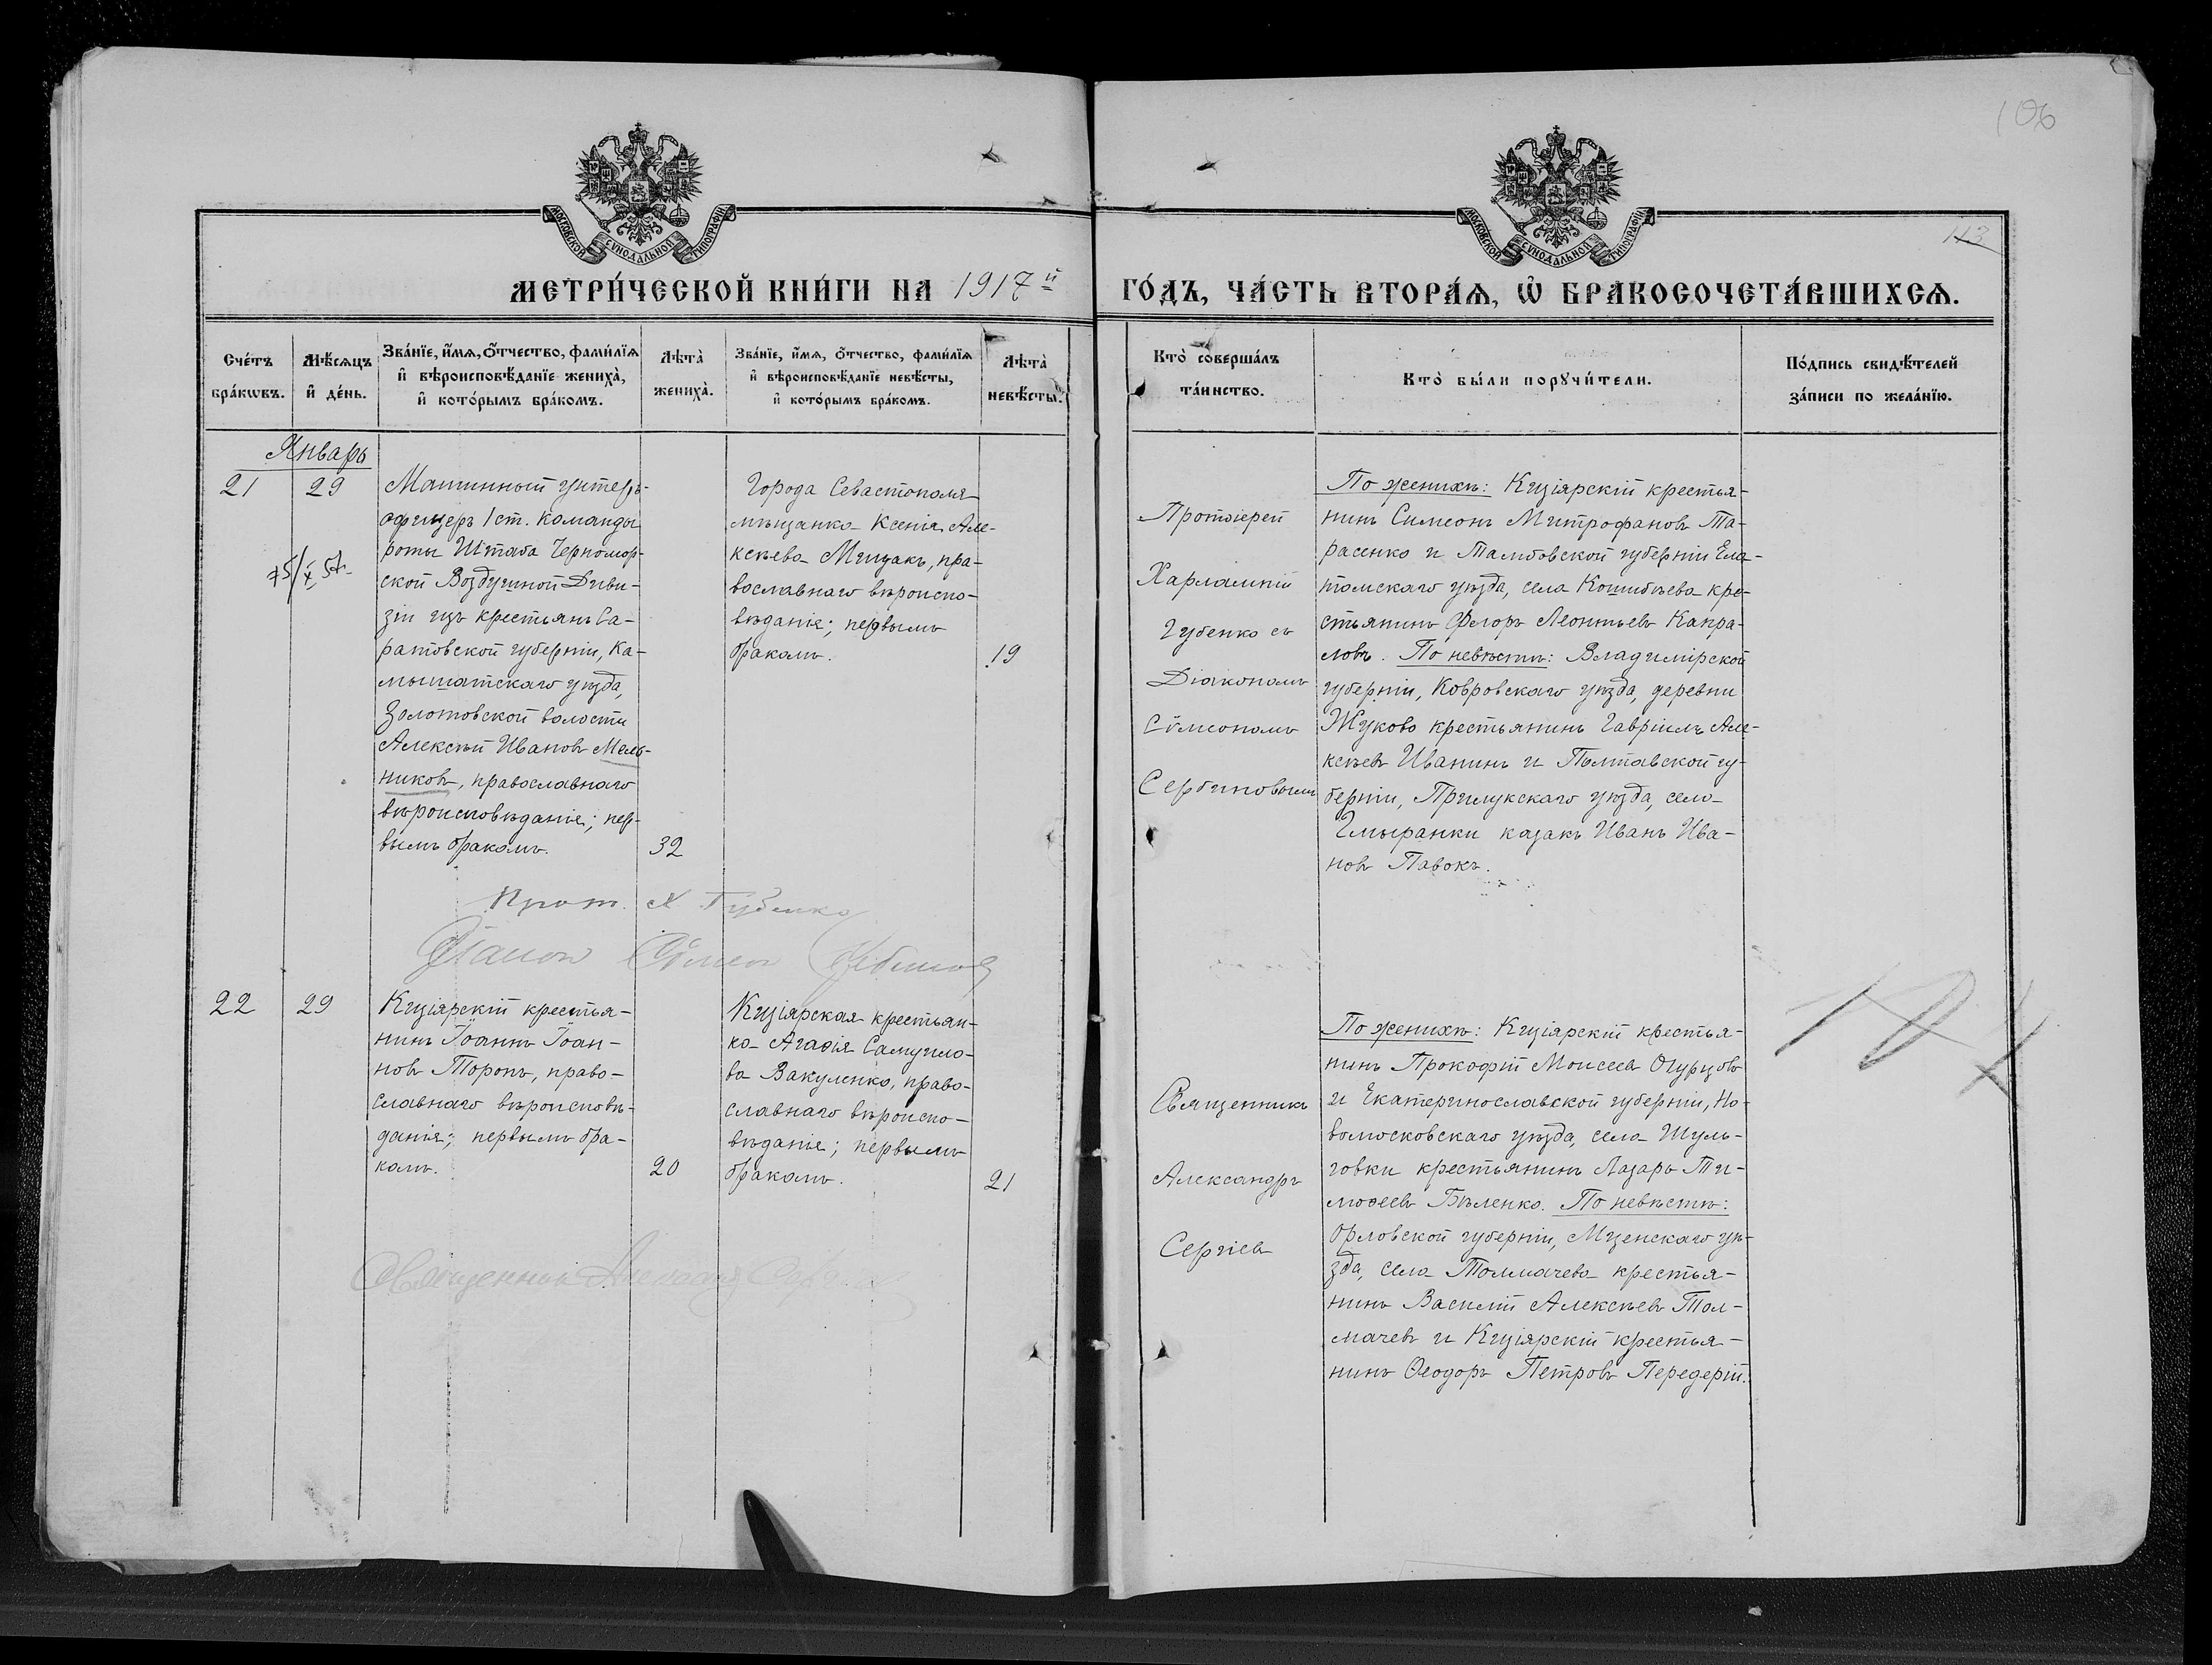 106
113
МОСКОВСКОЙ СѴНОДАЛЬНОЙ ТИПОГРАФІИ
МОСКОВСКОЙ СѴНОДАЛЬНОЙ ТИПОГРАФІИ
МЕТРИ́ЧЕСКОЙ КНИ́ГИ НА 1917й
ГО́ДЪ, ЧА́СТЬ ВТОРА́Ѧ, Ѽ БРАКОСОЧЕТА́ВШИХСѦ.
Сче́тъ бра́кѡвъ.
Мѣ́сѧцъ и҆ де́нь.
Зва́нїе, и҆́мѧ, ѻ҆́тчество, фами́лїѧ и҆ вѣроисповѣ́данїе жениха̀, и҆ кото́рымъ бра́комъ.
Лѣта̀ жениха̀.
Зва́нїе, и҆́мѧ, ѻ҆́тчество, фами́лїѧ и҆ вѣроисповѣ́данїе невѣ́сты, и҆ кото́рымъ бра́комъ.
Лѣта̀ невѣ́сты.
Кто̀ соверша́лъ та́инство.
Кто̀ бы́ли порꙋчи́тели.
По́дпись свидѣ́телей за́писи по жела́нїю.
Январь
21
29
Машинный унтеръ-
офицеръ 1 ст. команды
роты Штаба Черномор-
ской Воздушной Диви-
зіи изъ крестьянъ Са-
ратовской губерніи, Ка-
мышатскаго уѣзда,
Золотовской волости
Алексѣй Ивановъ Мель-
никовъ, православнаго
вѣроисповѣданія; пер-
вымъ бракомъ.
32
Города Севастополя
мѣщанка Ксенія Але-
ксѣева Мицакъ, пра-
вославнаго вѣроиспо-
вѣданія; первымъ
бракомъ.
19
Протоіерей
Харлампій
Губенко съ
Діакономъ
Сѵмеономъ
Сербиновымъ
По женихѣ: Кизіярскій крестья-
нинъ Симеонъ Митрофановъ Та-
расенко и Тамбовской губерніи Ела-
томскаго уѣзда, села Кошибѣева кре-
стьянинъ Флоръ Леонтьевъ Капра-
ловъ. По невѣстѣ: Владимірской
губерніи, Ковровскаго уѣзда, деревни
Жуково крестьянинъ Гавріилъ Але-
ксѣевъ Иванинъ и Полтавской гу-
берніи, Прилукскаго уѣзда, села
Гмыранки казакъ Иванъ Ива-
новъ Павокъ.
Прот. Х Губенко
Діаконъ Сѵмеонъ
22
29
Кизіярскій крестья-
нинъ Іоаннъ Іоан-
новъ Торопъ, право-
славнаго вѣроисповѣ-
данія; первымъ бра-
комъ.
20
Кизіярская крестьян-
ка Агаѳія Самуило-
ва Вакуленко, право-
славнаго вѣроиспо-
вѣданія; первымъ
бракомъ.
21
Священникъ
Александръ
Сергіевъ
По женихѣ: Кизіярскій крестья-
нинъ Прокофій Моисеевъ Огурцовъ
и Екатеринославской губерніи, Но-
вомосковскаго уѣзда, села Шуль-
говки крестьянинъ Лазарь Ти-
моѳеевъ Бѣленко. По невѣстѣ:
Орловской губерніи, Мценскаго уѣ-
зда, села Толмачева крестья-
нинъ Василій Алексѣевъ Тол-
мачевъ и Кизіярскій крестья-
нинъ Ѳеодоръ Петровъ Передерій.
Священникъ Александръ Сергіевъ